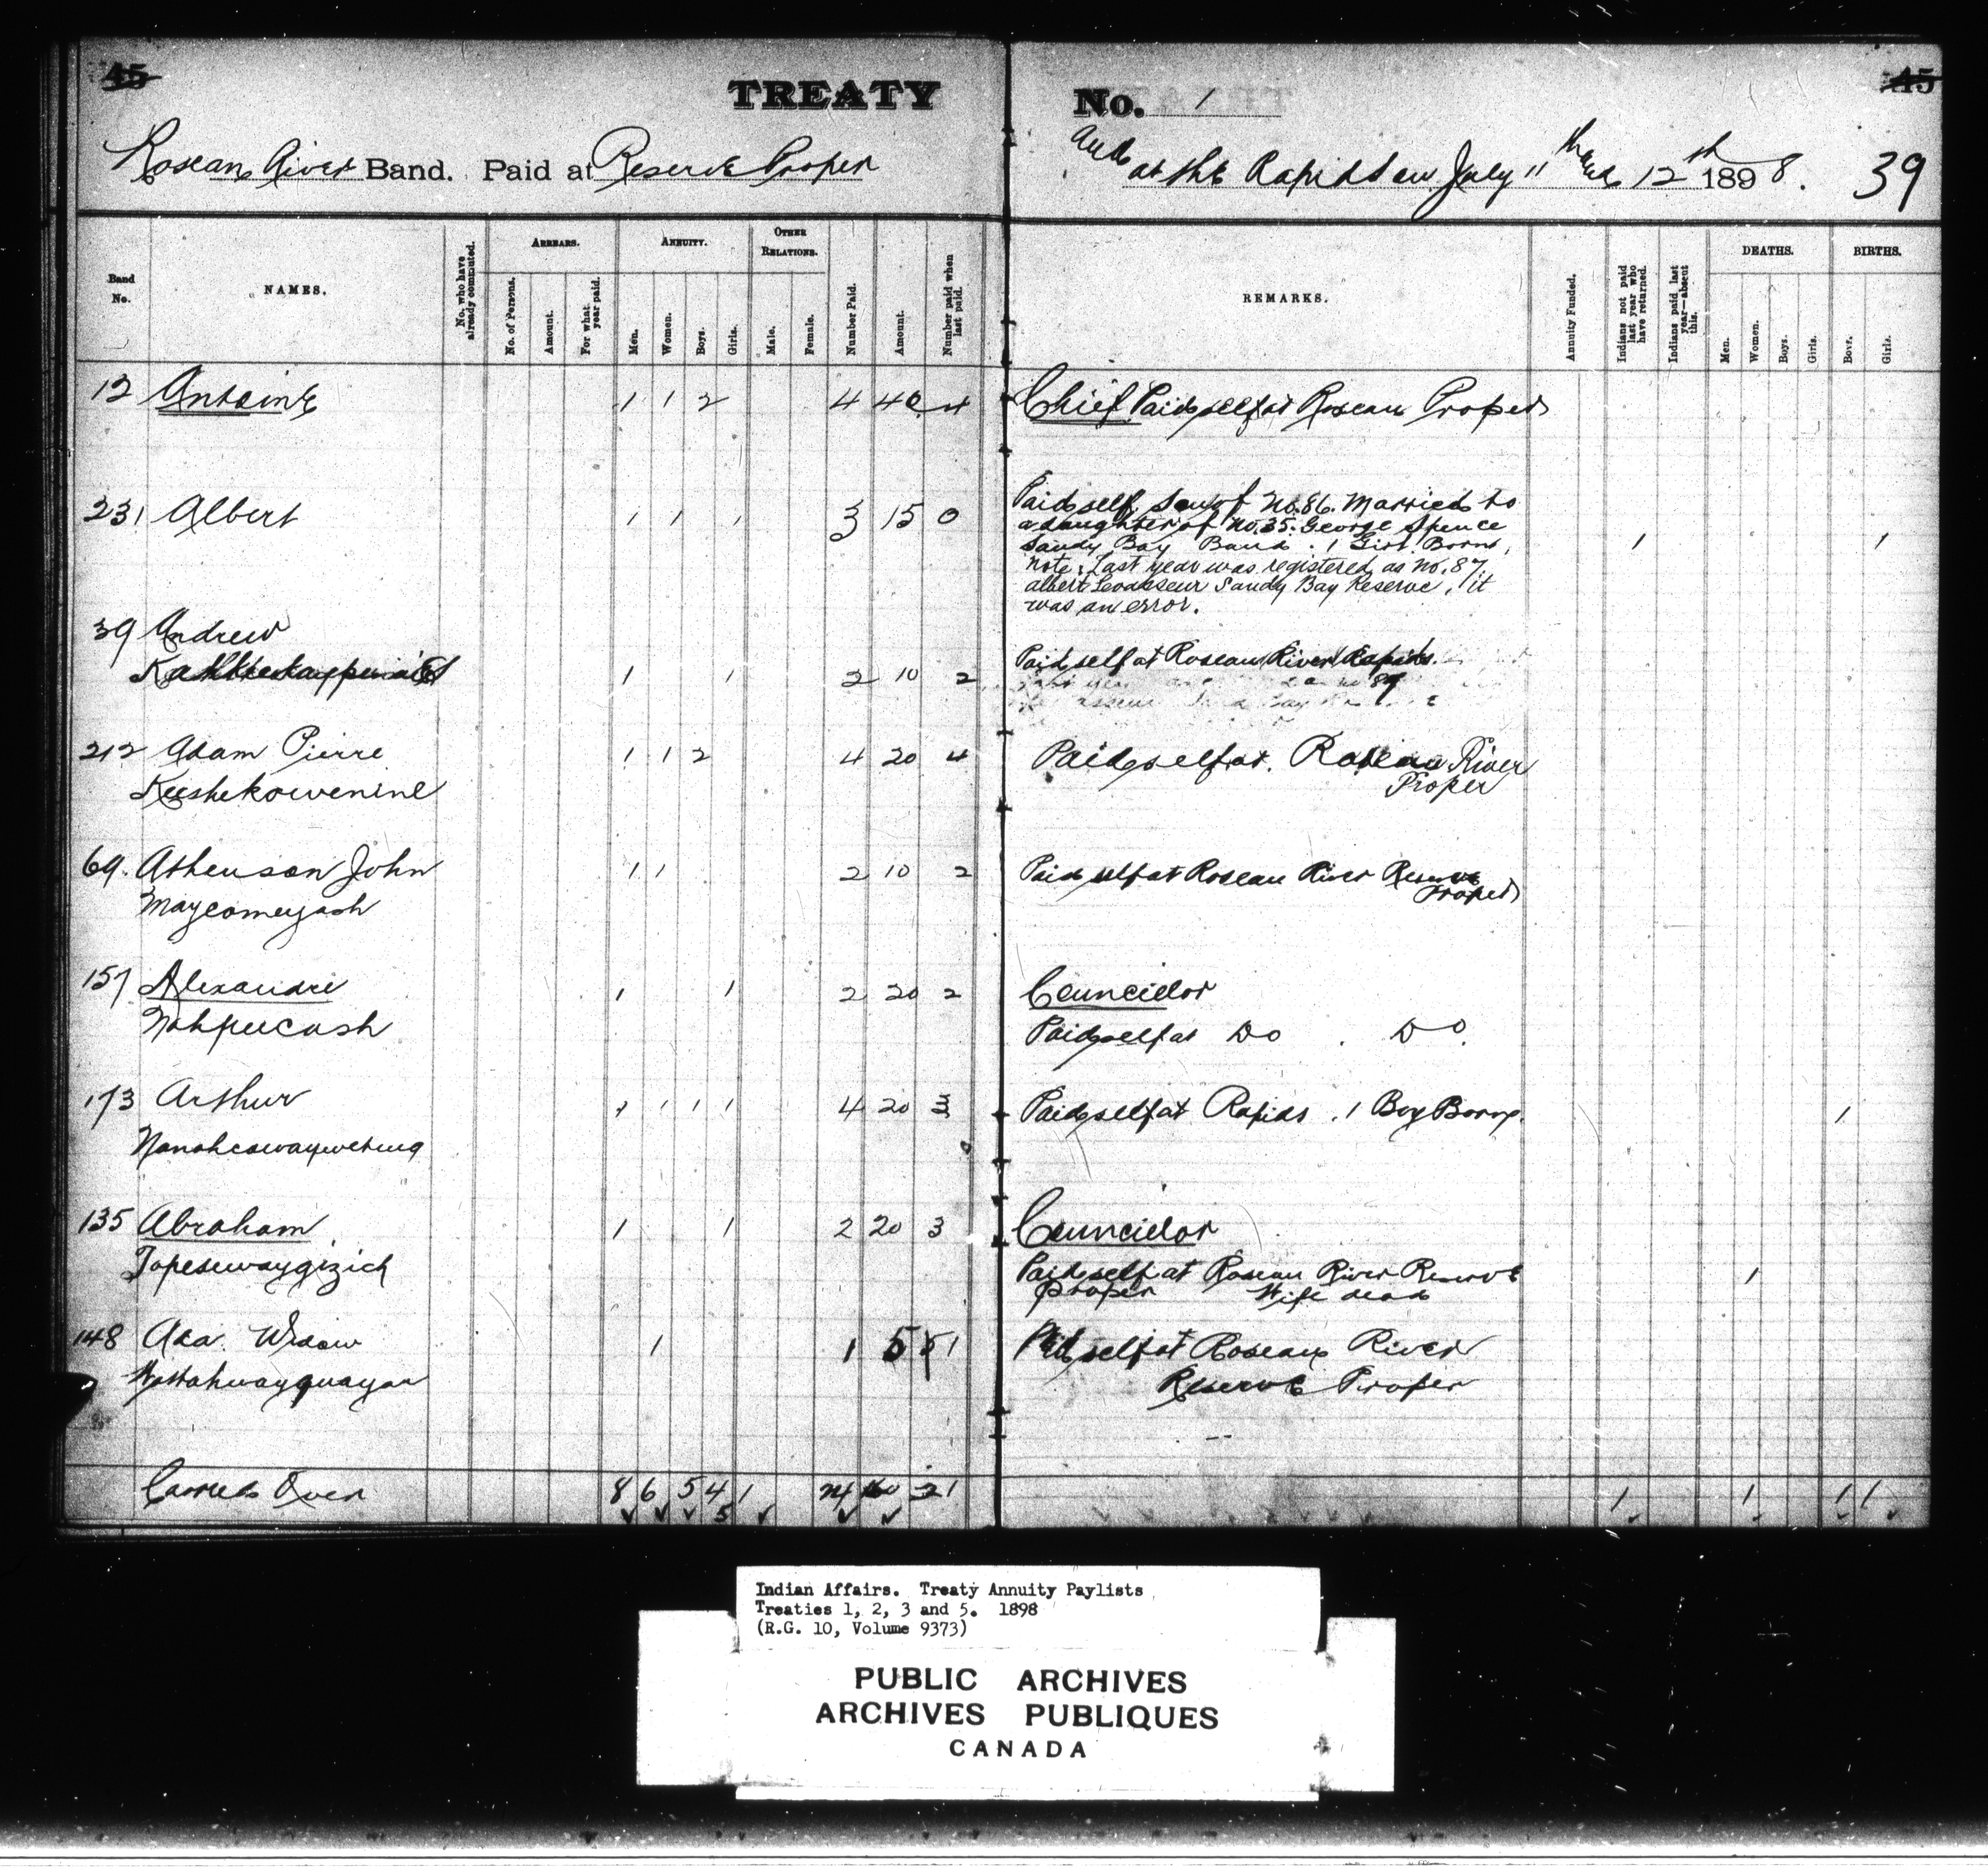 45
45
TREATY No. 1
Roseau River Band. Paid at Reserve Proper and at the Rapids on July 11th and 12th 1898. 39
Band No.
NAMES.
No. who have already commuted.
ARREARS.
No. of Persons.
Amount.
For what year paid.
ANNUITY.
Men.
Women.
Boys.
Girls.
OTHER RELATIONS.
Male.
Female.
Number Paid.
Amount.
Number paid when last paid.
REMARKS.
Annuity Funded.
Indians not paid last year who have returned.
Indians paid last year—absent this.
DEATHS.
Men.
Women.
Boys.
Girls.
BIRTHS.
Boys.
Girls.
12 Antoine 1 1 2 4 40 4 Chief Paid self at Roseau Proper
231 Albert 1 1 1 3 15 0 Paid self, Son of No. 86. Married to
a daughter of No. 35. George Spence
Sandy Bay Band. 1 Girl Born, 1 1
Note: Last year was registered as No. 87
Albert Sandy Bay Reserve, it
was an error.
39 Andrew
1 1 2 10 2 Paid self at Roseau River Rapids.
212 Adam Pierre 1 1 2 4 20 4 Paid self at Roseau River
Keeshekowenine Proper
69. Athenson John 1 1 2 10 2 Paid self at Roseau River Reserve
Maycomeyash Proper
157 Alexandre 1 1 2 20 2 Councillor
Nahpucash Paid self at Do . Do.
173 Arthur 1 1 1 1 4 20 3 Paid self at Rapids . 1 Boy Born. 1
135 Abraham 1 1 2 20 3 Councillor
Tapesewaygizick Paid self at Roseau River Reserve 1
Proper Wife dead
148 Ada Widow 1 1 5 1 Paid self at Roseau River
Reserve Proper
Carried Over 8 6 5 4 1 24 160 21 1 1 1 1
5
Indian Affairs. Treaty Annuity Paylists
Treaties 1, 2, 3 and 5. 1898
(R.G. 10, Volume 9373)
PUBLIC ARCHIVES
ARCHIVES PUBLIQUES
CANADA